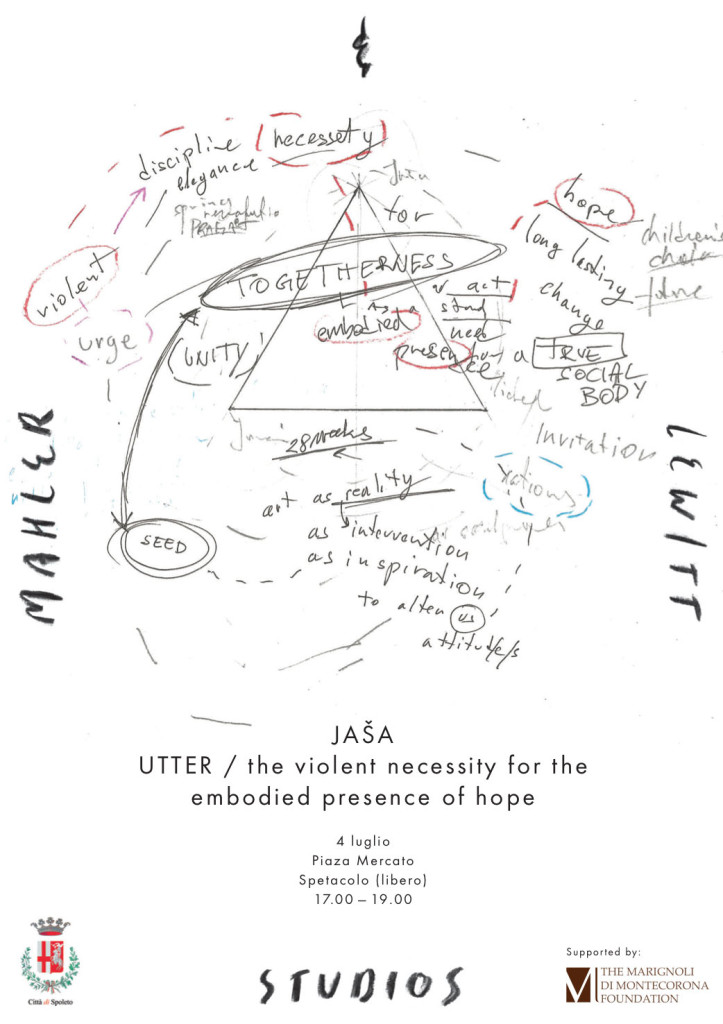 &
discipline
elegance
(necessety)
PRAGA
for
violent
urge
TOGETHERNESS
(UNITY)
AS A
embodied
act
stand
need
presen
ce
a TRUE
SOCIAL
BODY
hope
long lasting
change
children's
future
Invitation
28 weeks
art as reality
as intervention
as inspiration
to alter us
attitut/e/s
SEED
MAHLER
LEWITT
JAŠA
UTTER / the violent necessity for the
embodied presence of hope
4 luglio
Piaza Mercato
Spetacolo (libero)
17.00 – 19.00
Città di Spoleto
STUDIOS
Supported by:
THE MARIGNOLI
DI MONTECORONA
FOUNDATION